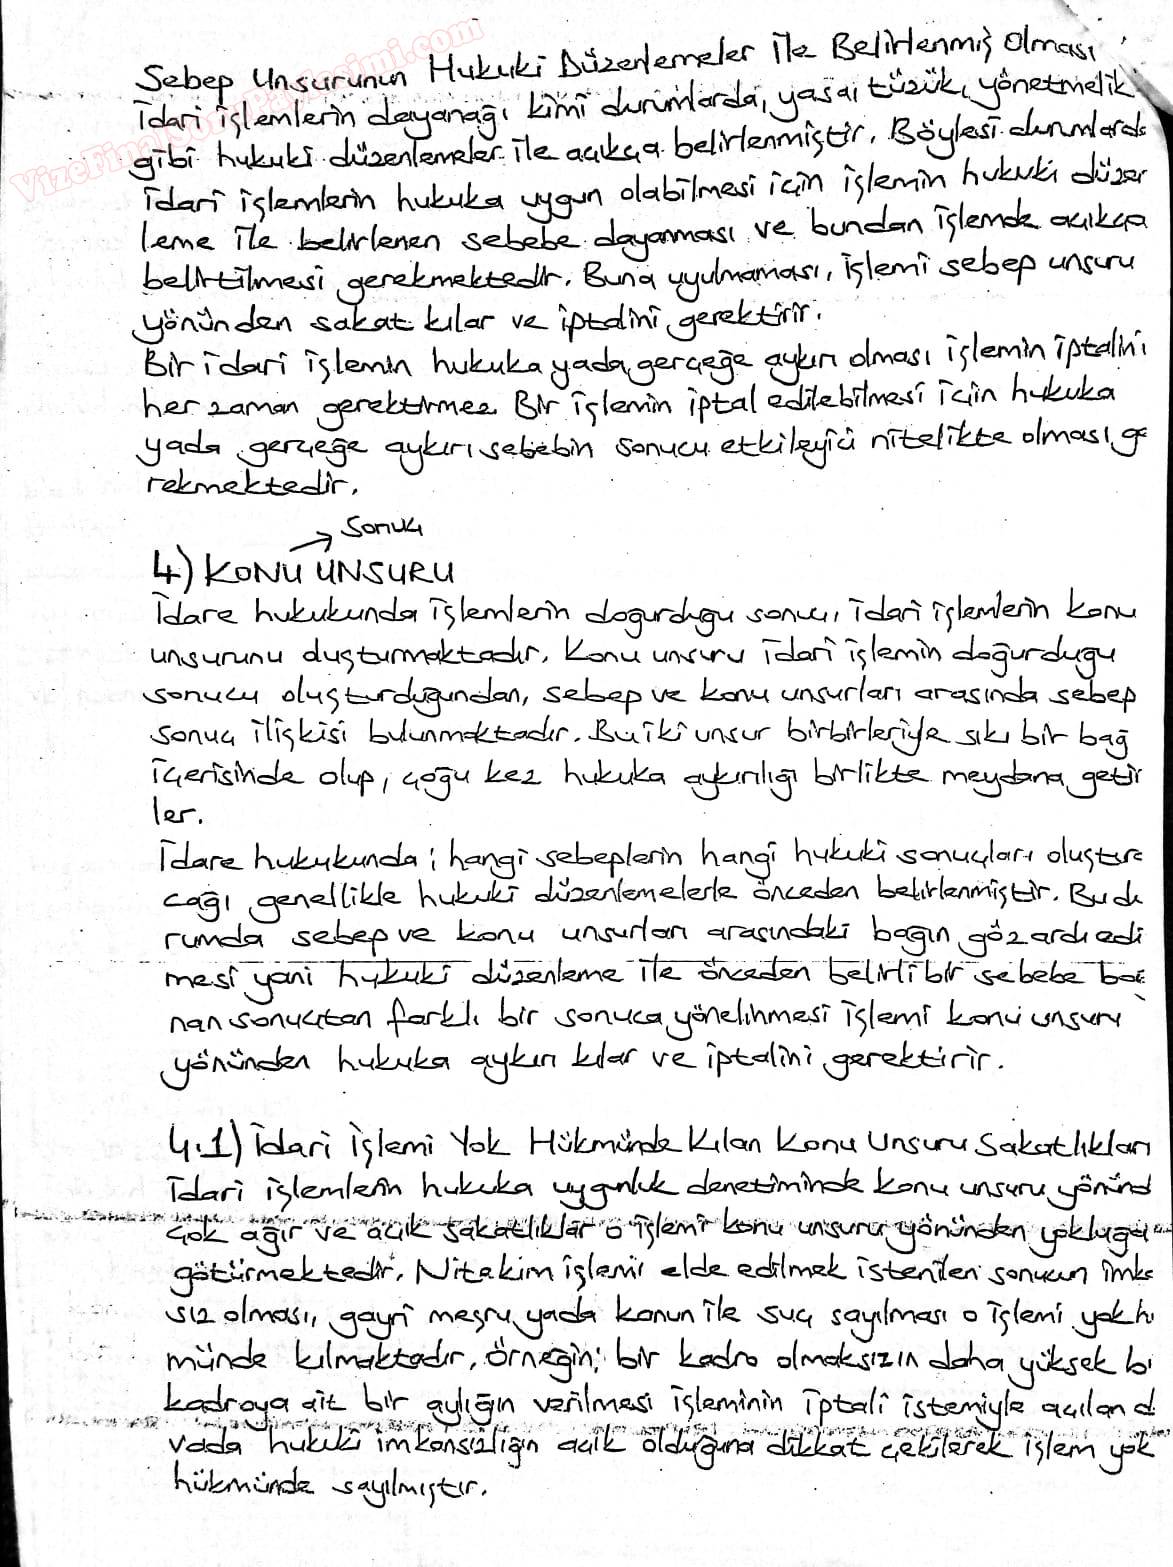 VizeFinalSoruPaylasimi.com
Sebep Unsurunun Hukuki Düzenlemeler ile Belirlenmiş Olması
İdari işlemlerin dayanağı kimi durumlarda, yasa, tüzük, yönetmelik
gibi hukuki düzenlemeler ile açıkça belirlenmiştir. Böylesi durumlarda
idari işlemlerin hukuka uygun olabilmesi için işlemin hukuki düzen
leme ile belirlenen sebebe dayanması ve bundan işlemde açıkça
belirtilmesi gerekmektedir. Buna uyulmaması, işlemi sebep unsuru
yönünden sakat kılar ve iptalini gerektirir.
Bir idari işlemin hukuka yada gerçeğe aykırı olması işlemin iptalini
her zaman gerektirmez. Bir işlemin iptal edilebilmesi için hukuka
yada gerçeğe aykırı sebebin sonucu etkileyici nitelikte olması ge
rekmektedir.
→ Sonuç
4) KONU UNSURU
İdare hukukunda işlemlerin doğurduğu sonuç, idari işlemlerin konu
unsurunu oluşturmaktadır. Konu unsuru idari işlemin doğurduğu
sonucu oluşturduğundan, sebep ve konu unsurları arasında sebep
sonuç ilişkisi bulunmaktadır. Bu iki unsur birbirleriyle sıkı bir bağ
içerisinde olup, çoğu kez hukuka aykırılığı birlikte meydana getir
ler.
İdare hukukunda; hangi sebeplerin hangi hukuki sonuçları oluştura
cağı genellikle hukuki düzenlemelerle önceden belirlenmiştir. Bu du
rumda sebep ve konu unsurları arasındaki bağın göz ardı edil
mesi yani hukuki düzenleme ile önceden belirli bir sebebe bağ
nan sonuçtan farklı bir sonuca yönelinmesi işlemi konu unsuru
yönünden hukuka aykırı kılar ve iptalini gerektirir.
4.1) İdari İşlemi Yok Hükmünde Kılan Konu Unsuru Sakatlıkları
İdari işlemlerin hukuka uygunluk denetiminde konu unsuru yönünd
çok ağır ve açık sakatlıklar o işlemi konu unsuru yönünden yokluğa
götürmektedir. Nitekim işlemi elde edilmek istenilen sonucun imka
sız olması, gayri meşru yada kanun ile suç sayılması o işlemi yok hü
münde kılmaktadır. Örneğin; bir kadro olmaksızın daha yüksek bi
kadroya ait bir aylığın verilmesi işleminin iptali istemiyle açılan d
vada hukuki imkansızlığın açık olduğuna dikkat çekilerek işlem yok
hükmünde sayılmıştır.